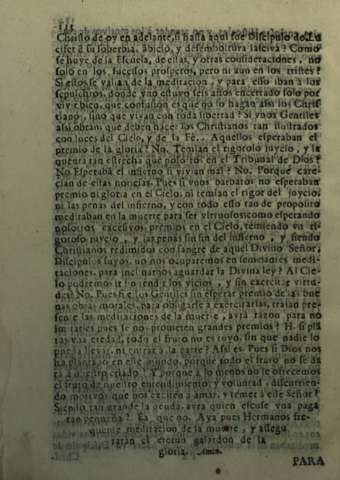 Christo de oy en adelante, si hasta aqui fue Discipulo de Lu
cifer en su soberbia, abicio, y desemboltura lasciva? Como
se huye de la Escuela, de estas, y otras consideraciones, no
solo en los sucessos prosperos, pero ni aun en los tristes?
Si estos se valian de la meditacion, y para esto iban à los
sepulchros, donde vno estuvo seis años encerrado solo por
que no lo hagan assi los Christ
tianos, sino que vivan con toda libertad? Si vnos Gentiles
assi obran, que deben hacer los Christianos tan ilustrados
con luces del Cielo, y de la Fè... Aquellos esperaban el
premio de la gloria? No. Temian el rigoroso juycio, y la
quenta tan estrecha que nosotros en el Tribunal de Dios?
No Esperaba el infierno si vivian mal? No. Porque care-
cian de estas noticias. Pues si vnos barbaros no esperaban
premio ni gloria en el Cielo, ni temian el rigor del juycio,
ni las penas del infierno, y con todo esso tan de proposito
meditaban en la muerte para ser virtuosos; como esperando
nosotros excesivos premios en el Cielo, temiendo en el
rigoroso juycio, y las penas sin fin del infierno, y siendo
Christianos redimidos con sangre de aquel Divino Señor,
Discipulos suyos, no nos ocuparemos en semejantes medita
ciones, para inclinarnos aguardar la Divina ley? Al Cie-
lo podremos ir teniendo los vicios, y sin exercitar virtu-
des? No. Pues si los Gentiles sin esperar premio de las bue
nas obras morales, para obligarse à exercitarlas, traian pre-
sente las meditaciones de la muerte, avrà razon para no
imitarles pues se nos prometen grandes premios?
todo el fruto no es tuyo, sin que nadie lo
pueda llevar, ni entrar à la parte? Assi es. Pues si Dios nos
ha plantado en este mundo, porque todo el fruto no se dà
Y porque à lo menos no le ofrecemos
el fruto de nuestro entendimiento, y voluntad, discurrien-
do motivos que nos exciten à amar, y temer à este Señor?
Siendo tan grande la deuda, avra quien escuse vna paga
tan pequeña? Ea, que no. Aya pues Hermanos fre-
quente meditacion de la muerte, y assegu
raràn el eterno galardon de la
gloria. Amen.
PARA